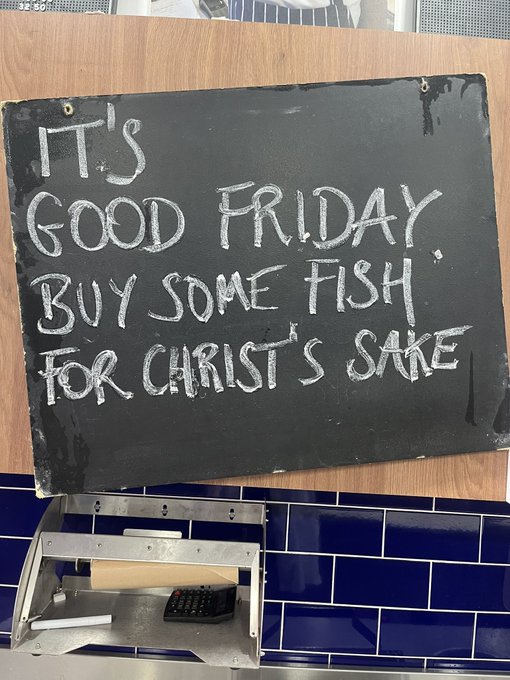 32 50
IT'S
GOOD FRIDAY
BUY SOME FISH
FOR CHRIST'S SAKE